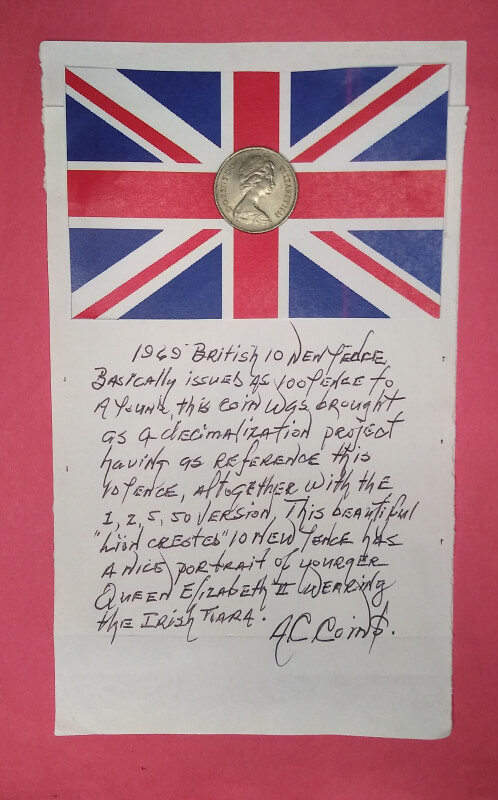 ELIZABETH II
1969 British 10 New Pence
Basically issued as 100 Pence to
A Pound, this coin was brought
as a decimalization project
having as reference this
10 Pence, Altogether with the
1, 2, 5, 50 version. This beautiful
"Lion crested" 10 New Pence has
a nice portrait of younger
Queen Elizabeth II wearing
the Irish Tiara.
A.C. Coin$.